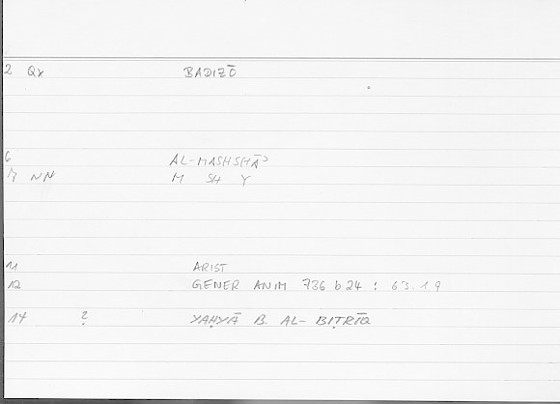 2 Qx BADIZŌ
6 AL-MASHSHĀʾ
7 NN M SH Y
11 ARIST
12 GENER ANIM 736 b 24 : 63.19
14 ? YAḤYĀ B. AL-BIṬRĪQ